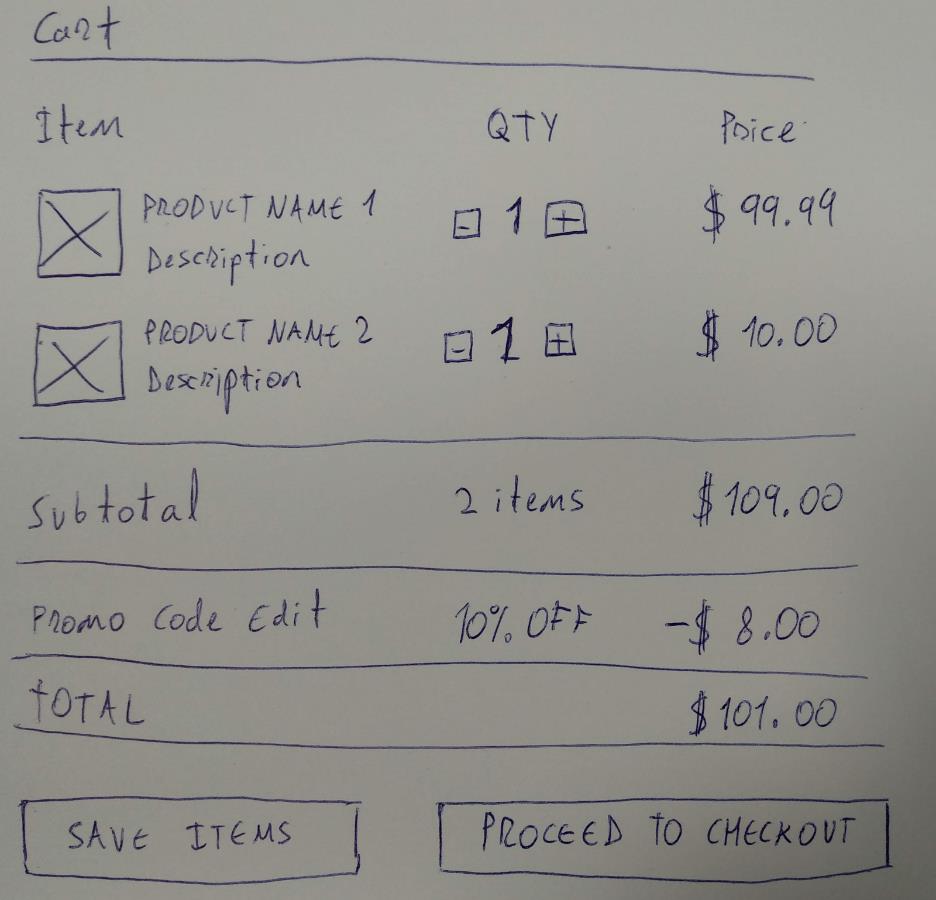 Cart
Item QTY Price
PRODUCT NAME 1
Description
- 1 + $ 99.99
PRODUCT NAME 2
Description
- 1 + $ 10.00
Subtotal 2 items $109.00
Promo Code Edit 10% OFF -$ 8.00
TOTAL $101.00
SAVE ITEMS PROCEED TO CHECKOUT